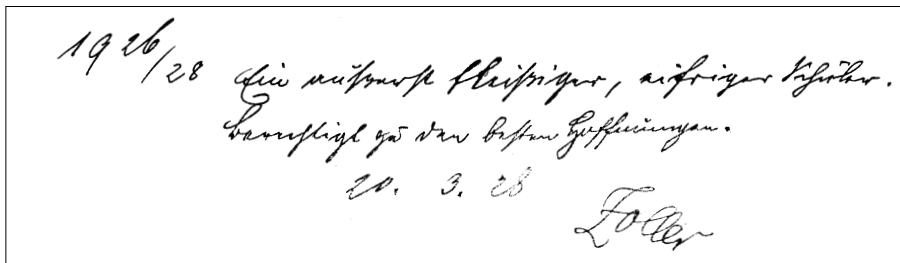 1926/28 Ein äußerst fleißiger, eifriger Schüler.
Berechtigt zu den besten Hoffnungen.
20. 3. 28
Zoller